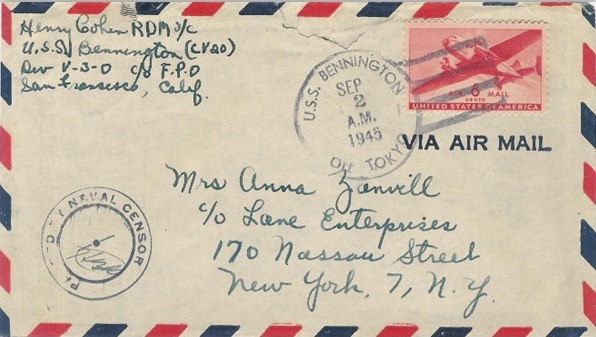 Henry Cohen RDM 3/c
U.S.S. Bennington (CV20)
Div V-3-O c/o F.P.O
San Francisco, Calif.
U.S.S. BENNINGTON
SEP
2
A.M.
1945
Off TOKYO
AIR 6 MAIL
CENTS
UNITED STATES OF AMERICA
VIA AIR MAIL
Mrs Anna Zanvill
c/o Lane Enterprises
170 Nassau Street
New York, 7, N.Y.
NAVAL CENSOR